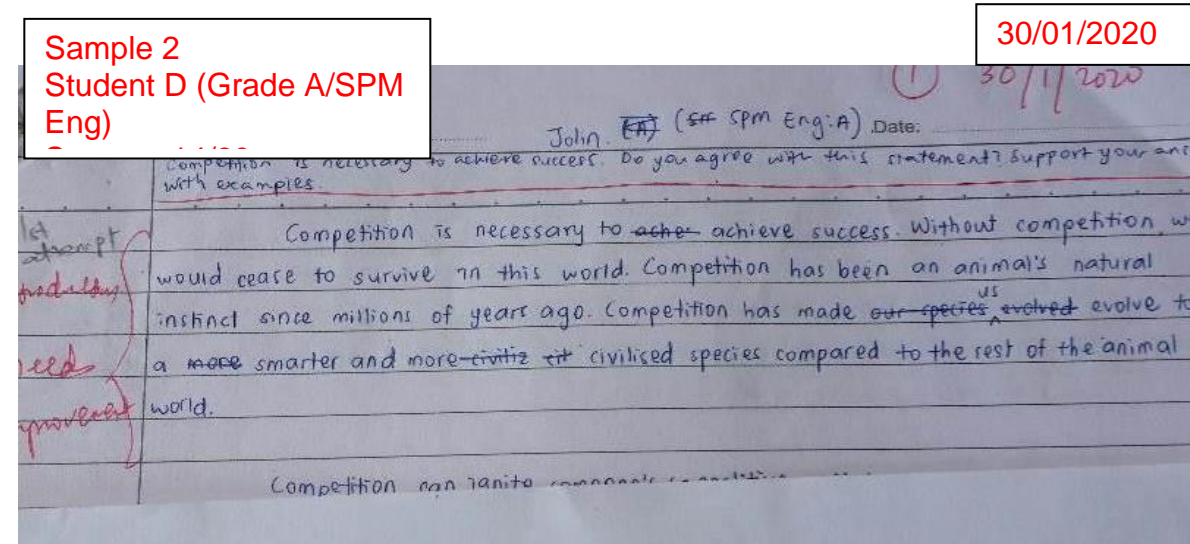 Sample 2
Student D (Grade A/SPM
Eng)
30/01/2020
① 30/1/2020
John. (A) (SPM Eng: A) Date:
Competition is necessary to achieve success. Do you agree with this statement? Support your ans
with examples.
1st
attempt
Competition is necessary to ache achieve success. Without competition, w
would cease to survive in this world. Competition has been an animal's natural
instinct since millions of years ago. Competition has made our species us evolved evolve to
need
a more smarter and more civiliz civilised species compared to the rest of the animal
world.
Competition can ignite